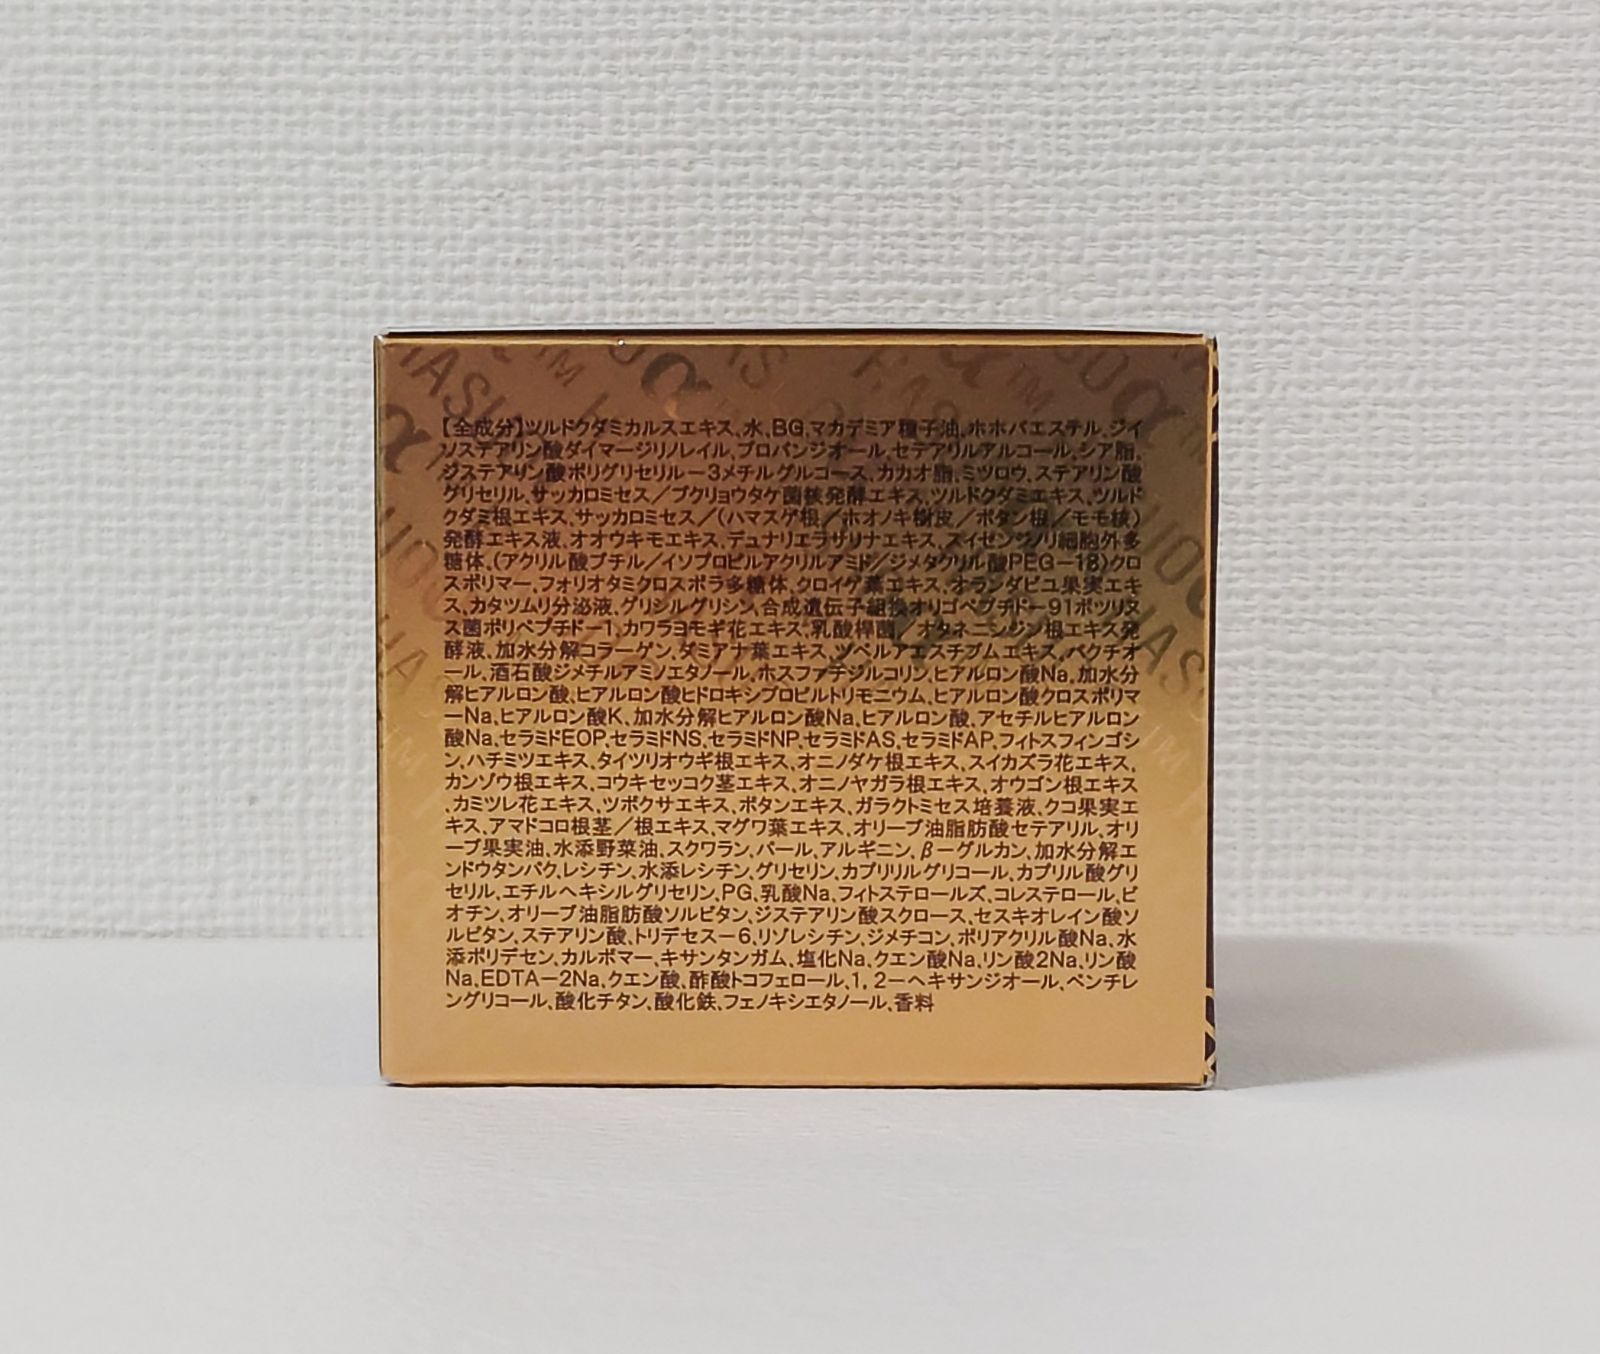 【全成分】ツルドクダミカルスエキス、水、BG、マカデミア種子油、ホホバエステル、ジイ
ソステアリン酸ダイマージリノレイル、プロパンジオール、セテアリルアルコール、シア脂、
ジステアリン酸ポリグリセリルー3メチルグルコース、カカオ脂、ミツロウ、ステアリン酸
グリセリル、サッカロミセス／ブクリョウタケ菌核発酵エキス、ツルドクダミエキス、ツルド
クダミ根エキス、サッカロミセス／(ハマスゲ根／ホオノキ樹皮／ボタン根／モモ核)
発酵エキス液、オオウキモエキス、デュナリエラサリナエキス、スイゼンジノリ細胞外多
糖体、(アクリル酸ブチル／イソプロピルアクリルアミド／ジメタクリル酸PEG－18)クロ
スポリマー、フォリオタミクロスポラ多糖体、クロイゲ葉エキス、オランダビユ果実エキ
ス、カタツムリ分泌液、グリシルグリシン、合成遺伝子組換オリゴペプチドー91ボツリヌ
ス菌ポリペプチドー1、カワラヨモギ花エキス、乳酸桿菌／オタネニンジン根エキス発
酵液、加水分解コラーゲン、ダミアナ葉エキス、ツベルアエスチブムエキス、バクチオ
ール、酒石酸ジメチルアミノエタノール、ホスファチジルコリン、ヒアルロン酸Na、加水分
解ヒアルロン酸、ヒアルロン酸ヒドロキシプロピルトリモニウム、ヒアルロン酸クロスポリマ
ーNa、ヒアルロン酸K、加水分解ヒアルロン酸Na、ヒアルロン酸、アセチルヒアルロン
酸Na、セラミドEOP、セラミドNS、セラミドNP、セラミドAS、セラミドAP、フィトスフィンゴシ
ン、ハチミツエキス、タイツリオウギ根エキス、オニノダケ根エキス、スイカズラ花エキス、
カンゾウ根エキス、コウキセッコク茎エキス、オニノヤガラ根エキス、オウゴン根エキス
、カミツレ花エキス、ツボクサエキス、ボタンエキス、ガラクトミセス培養液、クコ果実エ
キス、アマドコロ根茎／根エキス、マグワ葉エキス、オリーブ油脂肪酸セテアリル、オリ
ーブ果実油、水添野菜油、スクワラン、パール、アルギニン、βーグルカン、加水分解エ
ンドウタンパク、レシチン、水添レシチン、グリセリン、カプリリルグリコール、カプリル酸グリ
セリル、エチルヘキシルグリセリン、PG、乳酸Na、フィトステロールズ、コレステロール、ビ
オチン、オリーブ油脂肪酸ソルビタン、ジステアリン酸スクロース、セスキオレイン酸ソ
ルビタン、ステアリン酸、トリデセスー6、リゾレシチン、ジメチコン、ポリアクリル酸Na、水
添ポリデセン、カルボマー、キサンタンガム、塩化Na、クエン酸Na、リン酸2Na、リン酸
Na、EDTA－2Na、クエン酸、酢酸トコフェロール、1，2ーヘキサンジオール、ペンチレ
ングリコール、酸化チタン、酸化鉄、フェノキシエタノール、香料